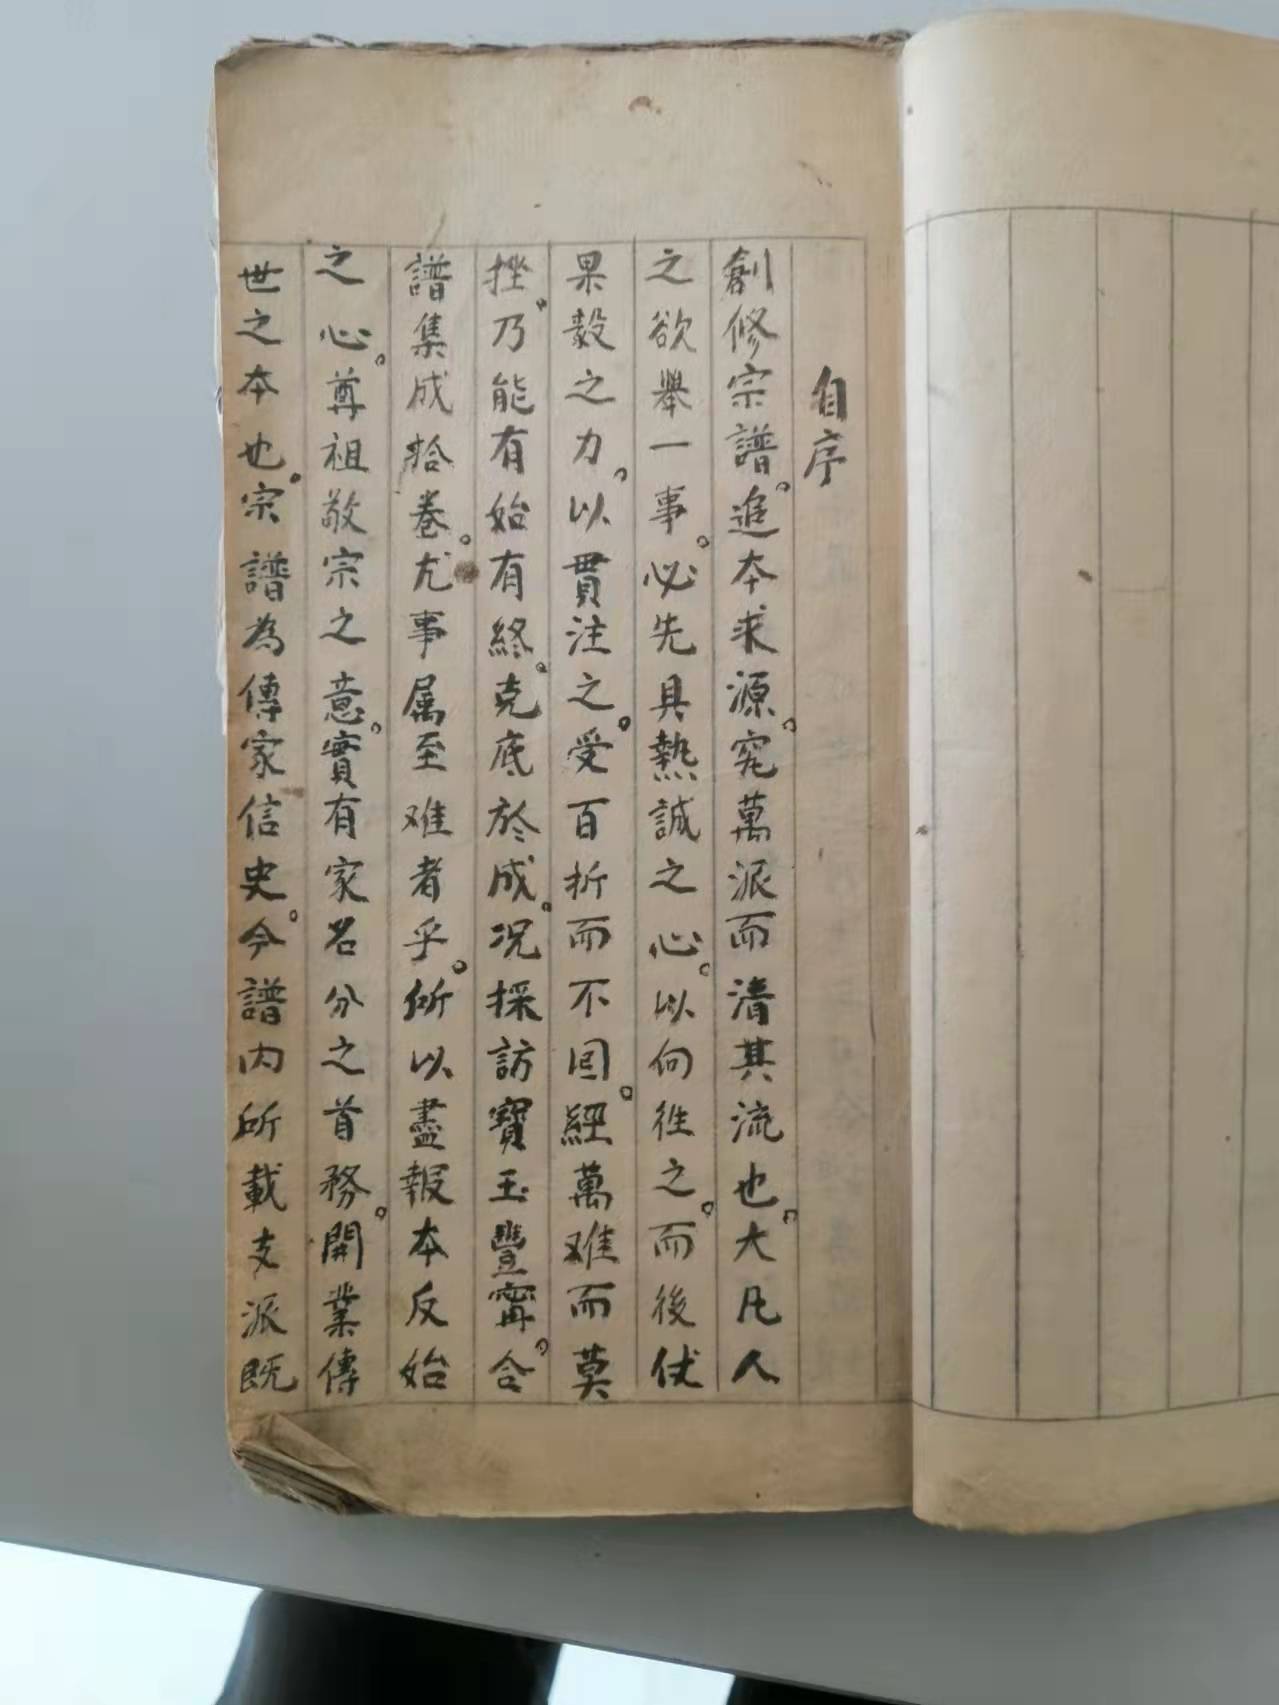 自序
創修宗譜。追本求源。究萬派而清其流也。大凡人
之欲舉一事。必先具熱誠之心。以向往之。而後伏
果毅之力。以貫注之。受百折而不回。經萬难而莫
挫。乃能有始有終。克底於成。况採訪寶玉豐寗。合
譜集成拾卷。尤事属至难者乎。所以盡報本反始
之心。尊祖敬宗之意。實有家名分之首務。開業傳
世之本也。宗譜為傳家信史。今譜内所載支派既